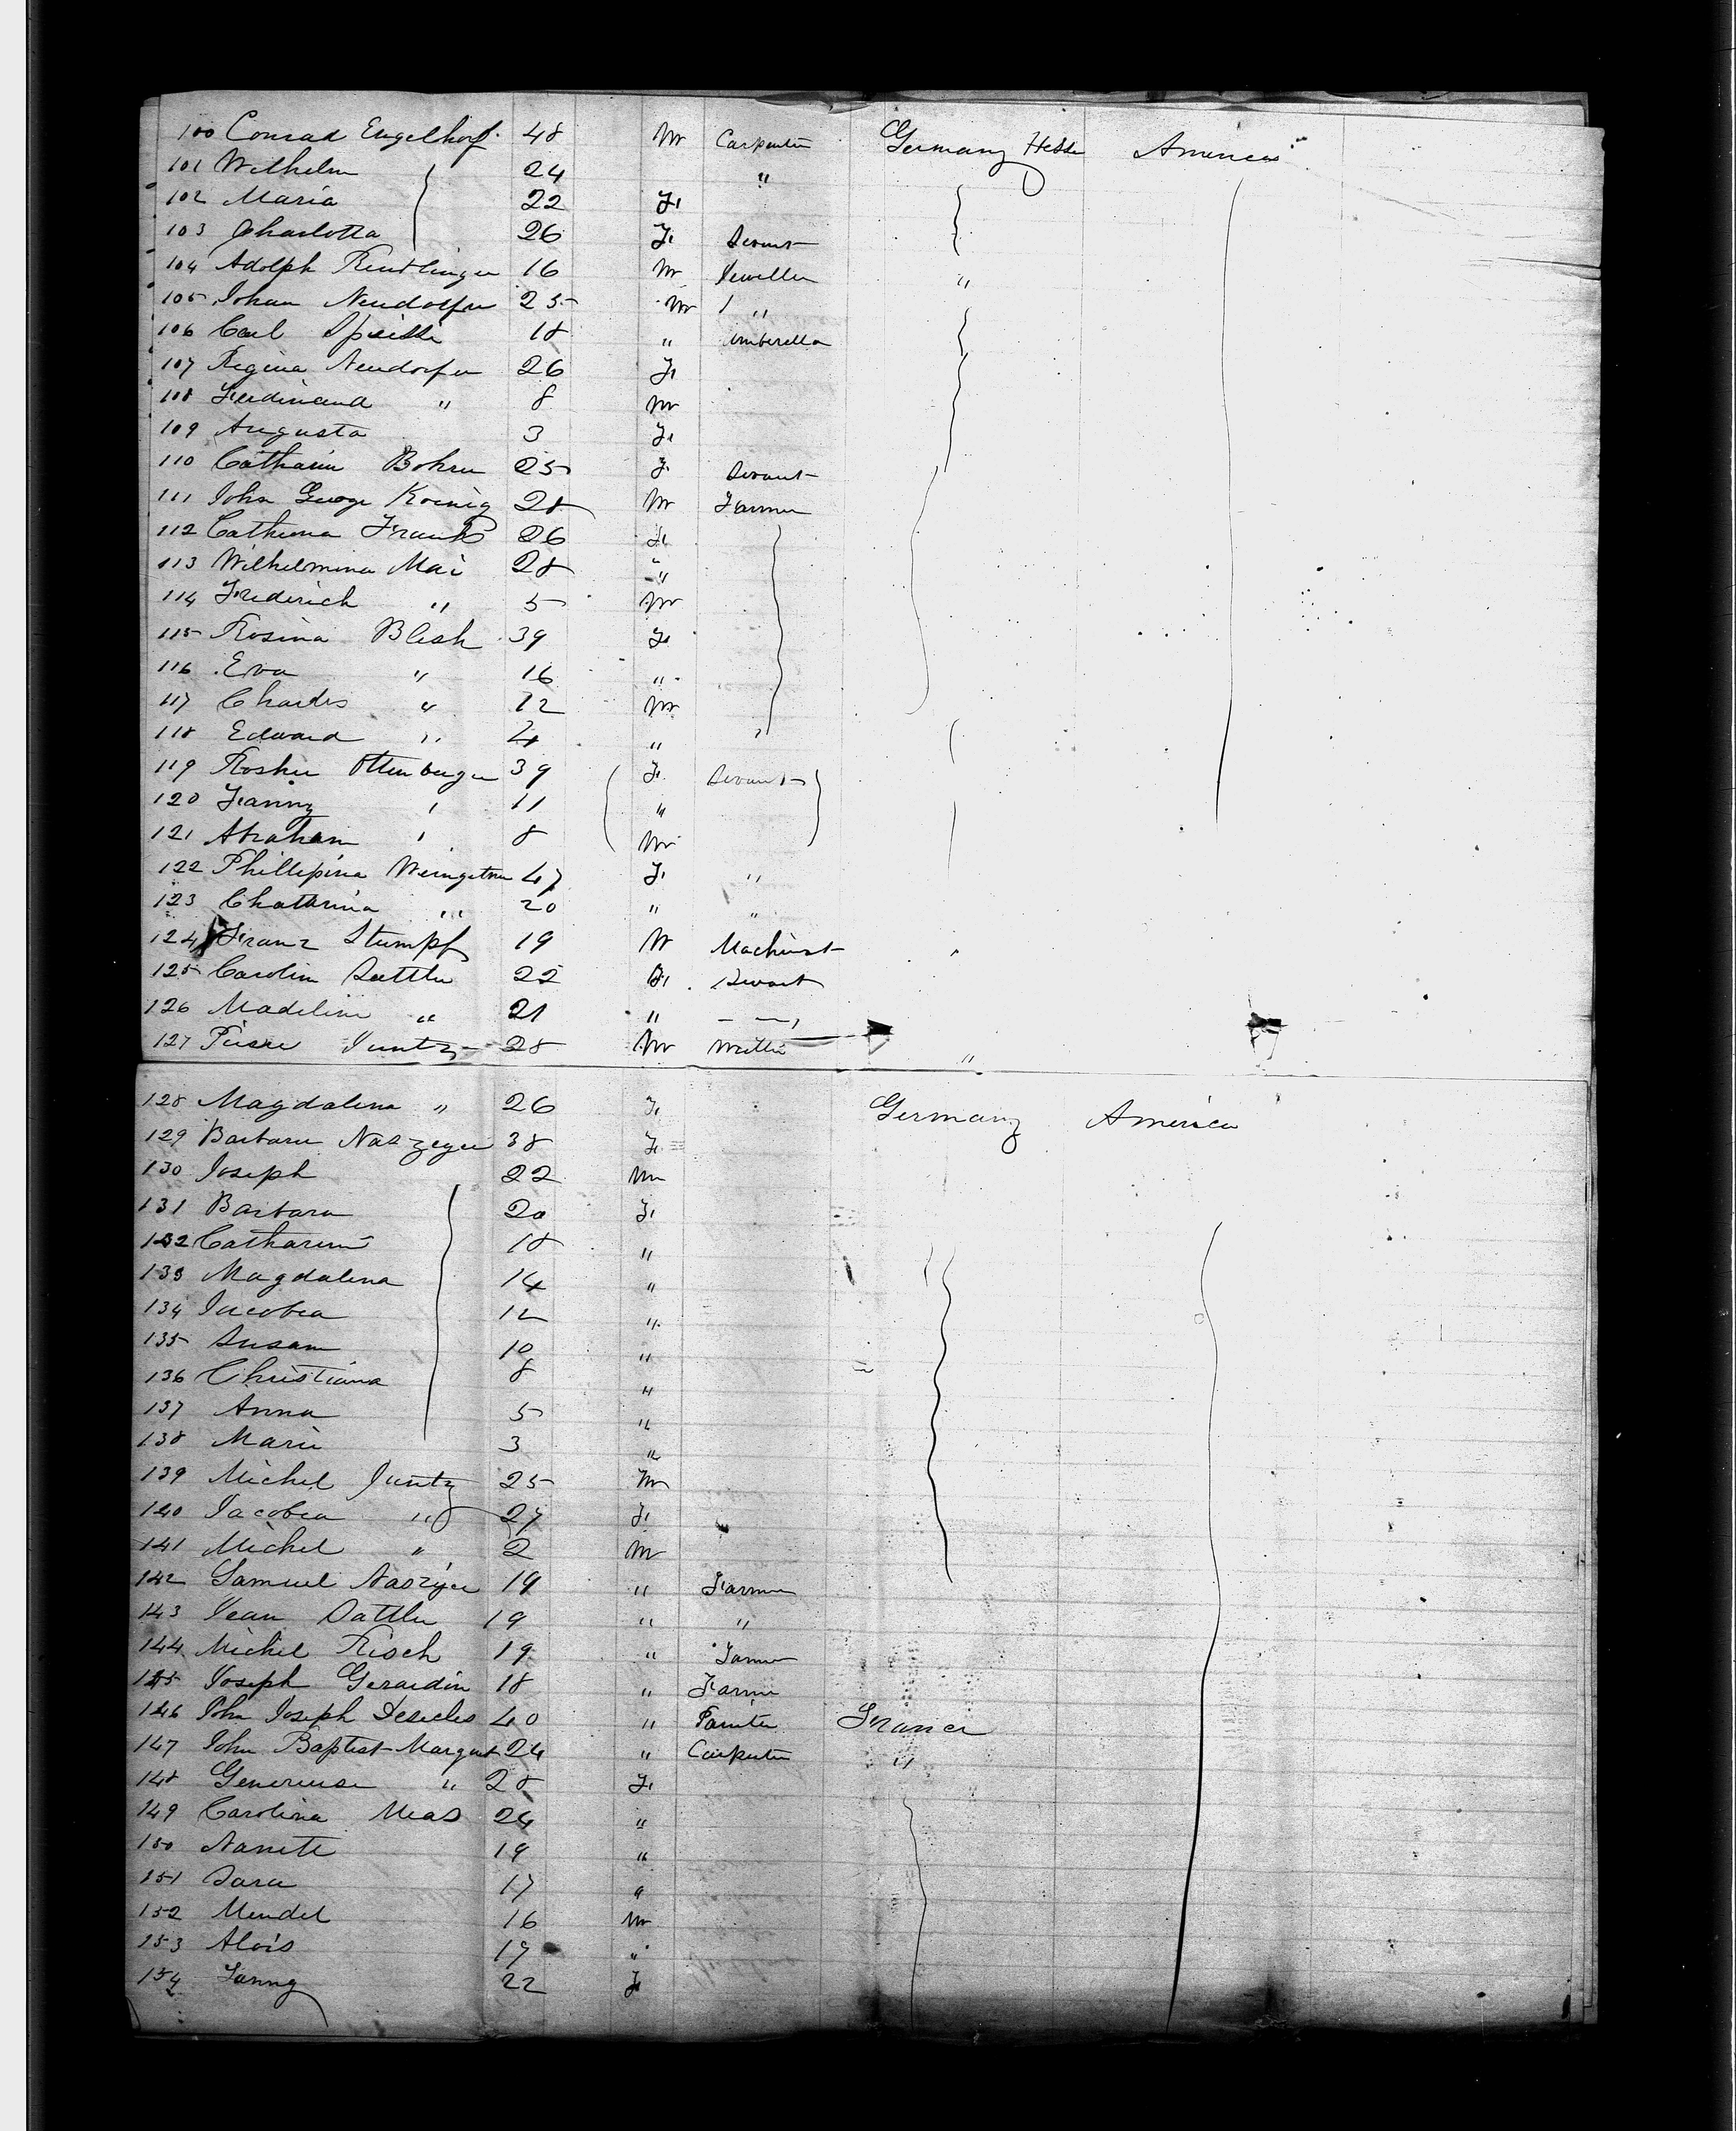 100 Conrad Engelhorf 48 M Carpenter Germany Hesse America
101 Wilhelm 24 "
102 Maria 22 F.
103 Charlotta 26 F. Servant
104 Adolph Reutlinger 16 M Jeweller "
105 Johan Neudorfer 25 M "
106 Carl 18 " Umberella
107 Regina Neudorfer 26 F.
108 Ferdinand " 8 M
109 Augusta 3 F.
110 Catharin Bohrer 25 F. Servant
111 John George Koenig 28 M Farmer
112 Catherina Frank 26 F.
113 Wilhelmina Mai 28 "
114 Frederich " 5 M
115 Rosina Blesh 39 F.
116 Eva " 16 "
117 Charles " 12 M
118 Edward " 4 "
119 Ottenburger 39 F. Servant
120 Fanny " 11 "
121 Abraham " 8 M
122 Phillipina 47 F. "
123 Chatarina " 20 " "
124 Franz Stumpf 19 M Machinist
125 Carolin Sattler 22 F. Servant
126 Madeline " 21 " "
127 Pierre Juntz 28 M "
128 Magdalena " 26 F. Germany America
129 Barbara Naszyer 38 F.
130 Joseph 22 M
131 Barbara 20 F.
132 Catharina 18 "
133 Magdalena 14 "
134 Jacobea 12 "
135 Susam 10 "
136 Christiana 8 "
137 Anna 5 "
138 Marie 3 "
139 Michel Juntz 25 M
140 Jacobea " 27 F.
141 Michel " 2 M
142 Samuel Naszyer 19 " Farmer
143 Jean Sattler 19 " "
144 Michel Risch 19 " Farmer
145 Joseph Gerardin 18 " Farmer
146 John Joseph 40 " Painter France
147 John Baptist Margeut 24 " Carpenter "
148 Genereuse " 28 F.
149 Carolina Meas 24 "
150 Nanette 19 "
151 Sara 17 "
152 Mendel 16 M
153 Alois 19 "
154 Fanny 22 F.